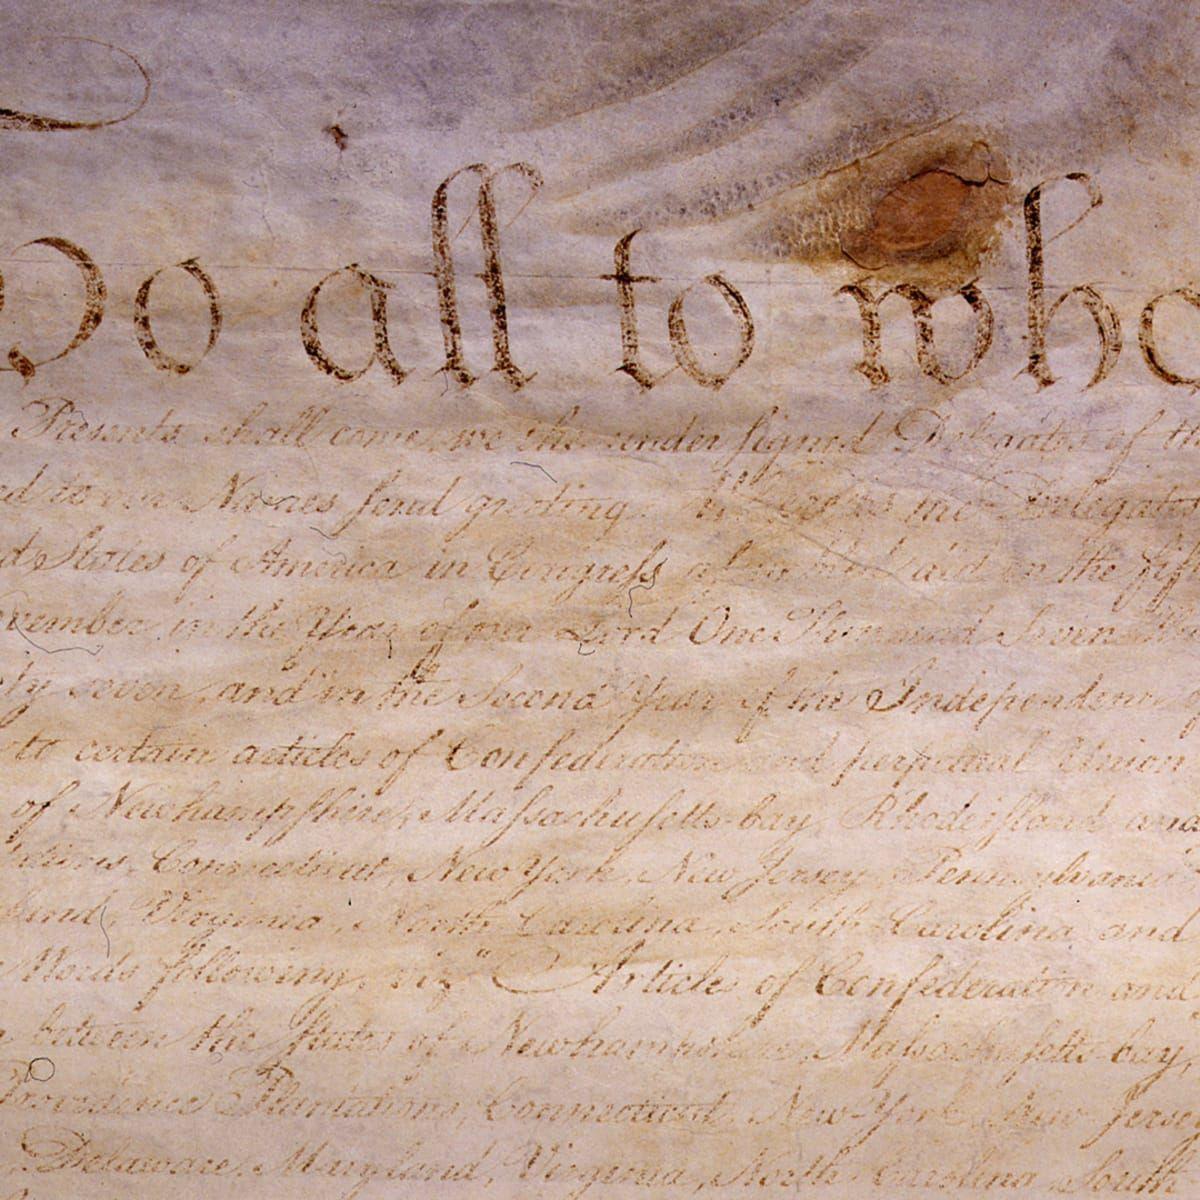 To all to who
Presents shall come, we the under signed Delegates of th
ed to our Names send greeting. Whereas the Delegates
d States of America in Congress assembled did on the fift
vember in the Year of our Lord One Thousand Seven
ty seven, and in the Second Year of the Independence
to certain articles of Confederation and perpetual Union
of Newhampshire, Massachusetts-bay, Rhodeisland and
Connecticut, New York, New Jersey, Pennsylvania
Virginia, North Carolina, South Carolina and
Words following, viz. "Articles of Confederation and
between the States of Newhampshire, Massachusetts-bay,
Providence Plantations, Connecticut, New-York, New-Jerse
Delaware, Maryland, Virginia, North Carolina, South